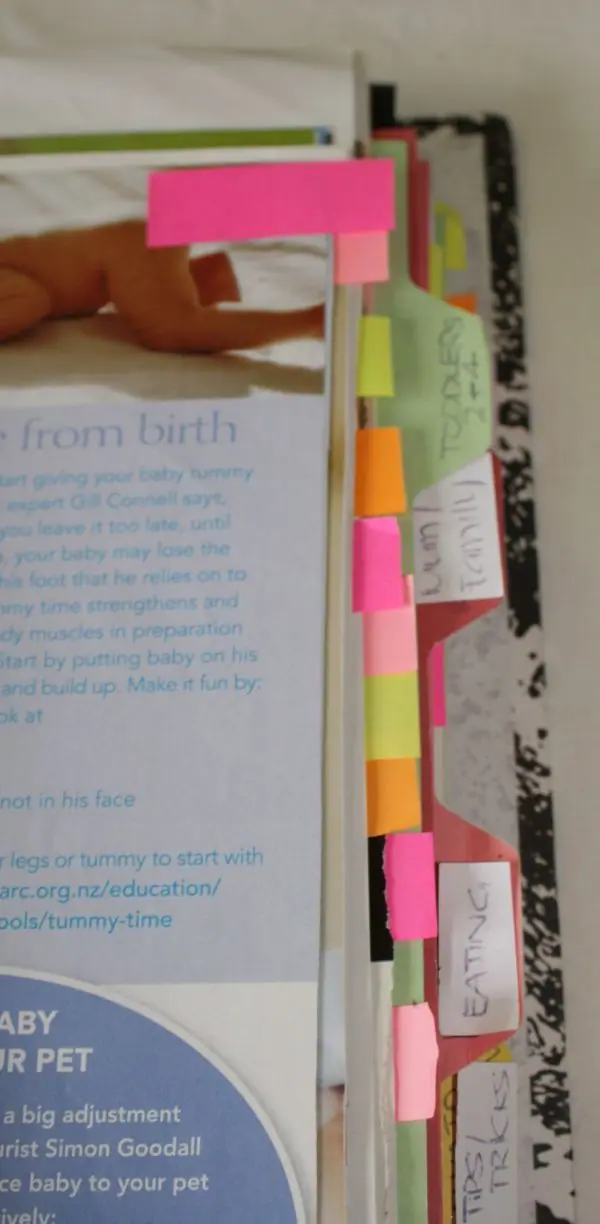 from birth
start giving your baby tummy
expert Gill Connell says,
you leave it too late, until
, your baby may lose the
his foot that he relies on to
tummy time strengthens and
body muscles in preparation
Start by putting baby on his
and build up. Make it fun by:
ok at
not in his face
r legs or tummy to start with
arc.org.nz/education/
ools/tummy-time
ABY
UR PET
a big adjustment
urist Simon Goodall
ce baby to your pet
ively:
TODDLERS
2+4
Mum/
Family
EATING
TIPS/
TRICKS